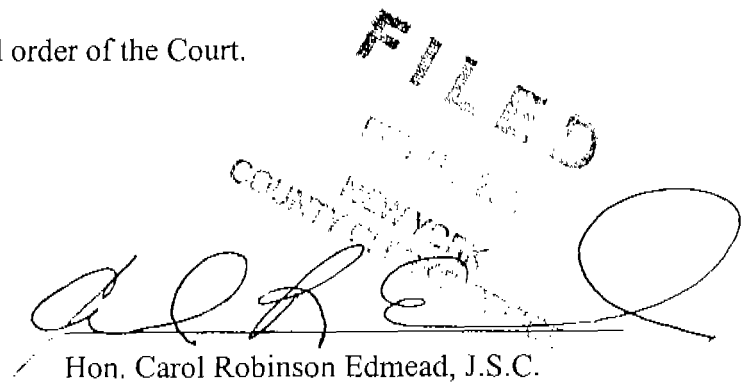 l order of the Court.
FILED
NEW YORK
COUNTY
Hon. Carol Robinson Edmead, J.S.C.